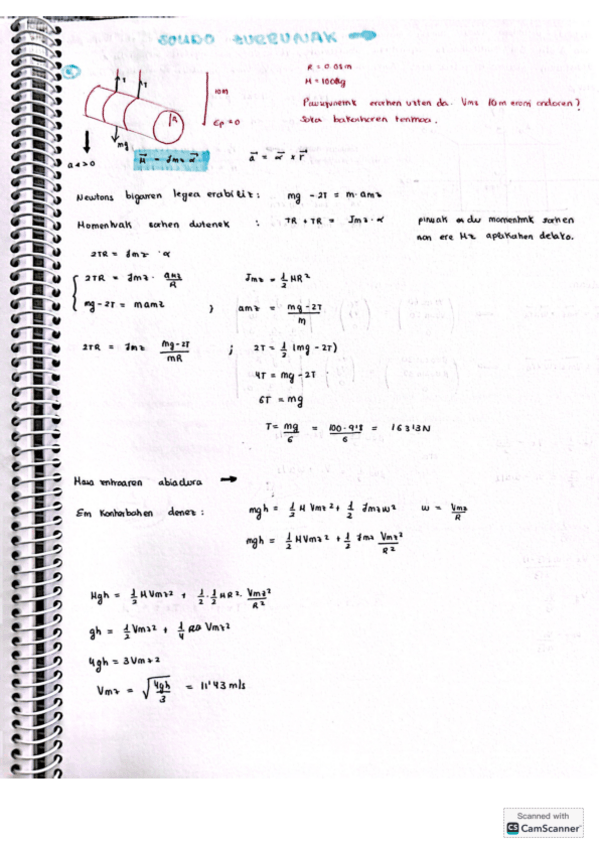 SOLIDO ZURRUNAK →
R = 0.08m
M = 100kg
10m
Ep = 0
T
T
R
mg
a < > 0
Pausagunetik erortzen uzten da. Vmz 10m erori ondoren?
Soka bakoitzaren tentsioa.
M = Jmz α
a = α x r
Newtons bigarren legea erabiliz: mg - 2T = m·amz
Momentuak sortzen dutenek : TR + TR = Jmz·α
pisuak ez du momenturik sortzen
non ere Mz aplikatzen delako.
2TR = Jmz·α
2TR = Jmz· amz/R
Jmz = 1/2 MR²
mg - 2T = mamz ; amz = mg-2T/m
2TR = Jmz mg-2T/mR ; 2T = 1/2 (mg - 2T)
4T = mg - 2T
6T = mg
T = mg/6 = 100·9'8/6 = 163'3N
Masa zentroaren abiadura →
Em Kontserbatzen denez :
mgh = 1/2 M Vmz² + 1/2 Jmz ω² ω = Vmz/R
mgh = 1/2 MVmz² + 1/2 Jmz Vmz²/R²
Mgh = 1/2 M Vmz² + 1/2·1/2 MR²· Vmz²/R²
gh = 1/2 Vmz² + 1/4 Vmz²
4gh = 3Vmz2
Vmz = √4gh/3 = 11'43 m/s
Scanned with
CS CamScanner